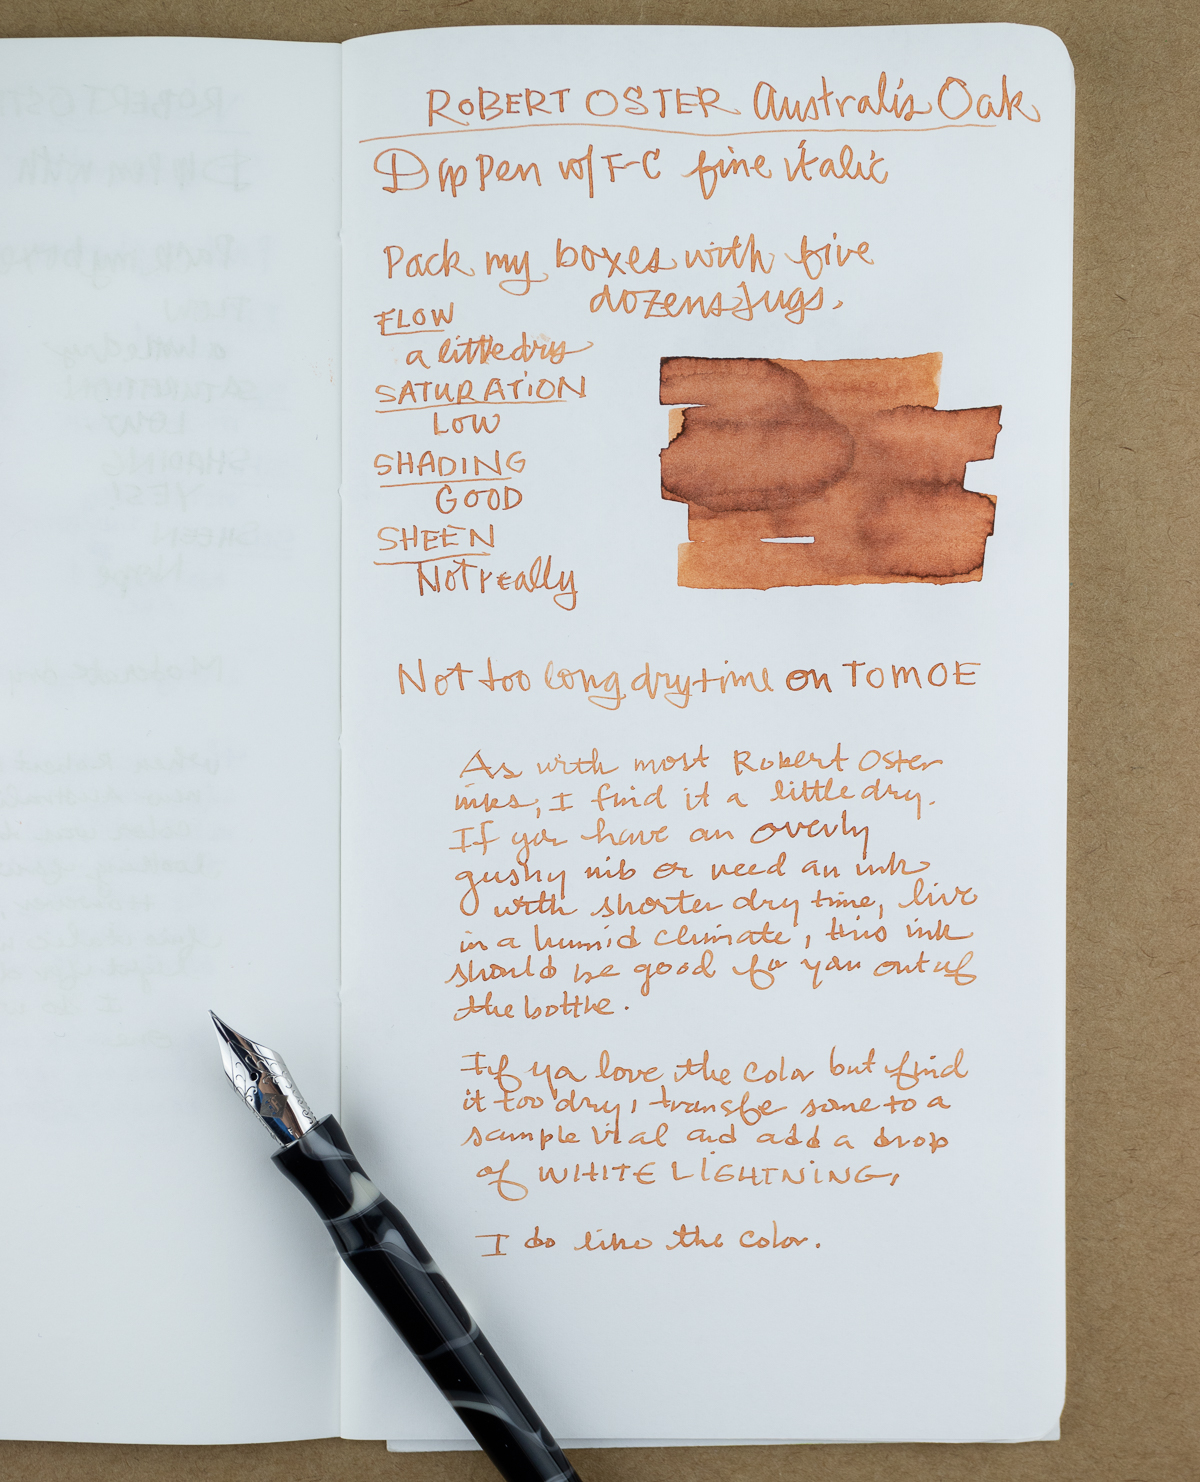 ROBERT OSTER Australis Oak
Dip Pen w/ F-C fine italic
Pack my boxes with five
dozens jugs.
FLOW
a little dry
SATURATION
LOW
SHADING
GOOD
SHEEN
Not really
Not too long dry time on TOMOE
As with most Robert Oster
inks, I find it a little dry.
If you have an overly
gushy nib or need an ink
with shorter dry time, live
in a humid climate, this ink
should be good for you out of
the bottle.
If you love the color but find
it too dry, transfe some to a
sample vial and add a drop
of WHITE LIGHTNING.
I do like the color.